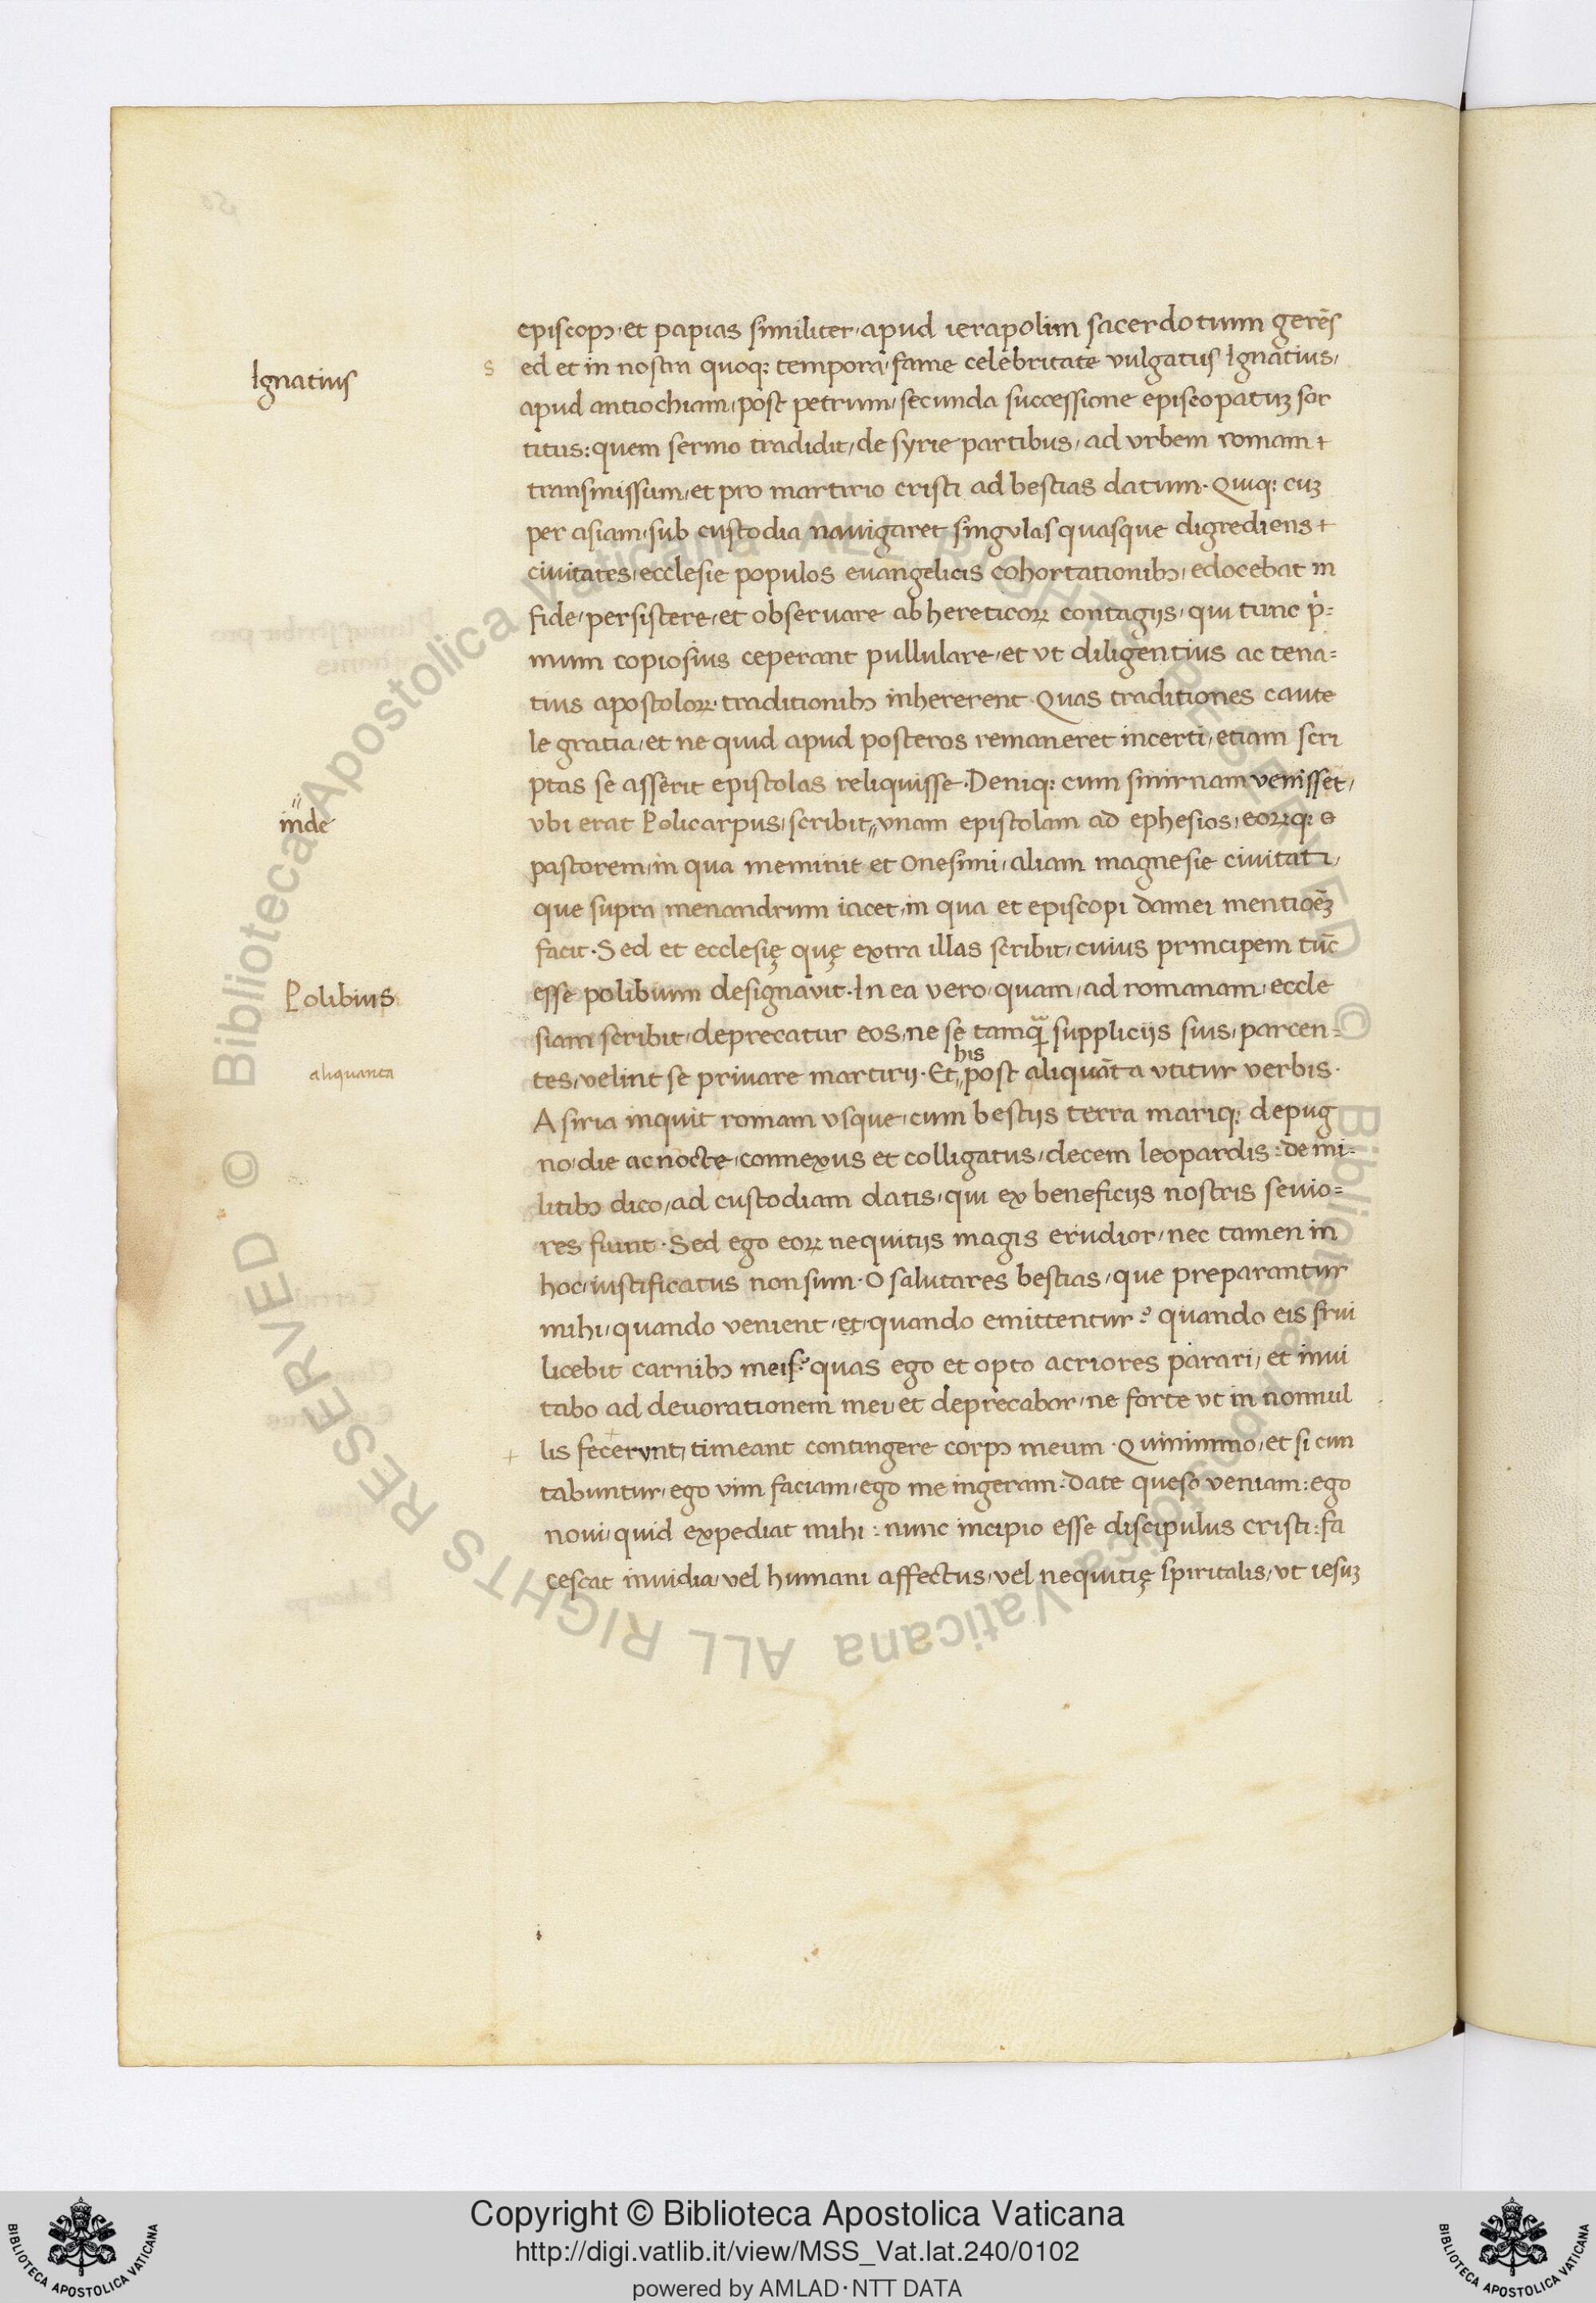 episcopꝰ et papias similiter apud ierapolim sacerdotium gerēs
Ignatius
S ed et in nostra quoqꝫ tempora fame celebritate vulgatus Ignatius,
apud antiochiam, post petrum, secunda successione episcopatuꝫ sor
titus: quem sermo tradidit, de syrie partibus, ad vrbem romam +
transmissum, et pro martirio cristi ad bestias datum. Quiqꝫ cuꝫ
per asiam, sub custodia nauigaret singulas quasque digrediens +
ciuitates, ecclesie populos euangelicis cohortationibꝰ, edocebat in
fide, persistere, et obseruare ab hereticoꝝ contagijs, qui tunc pͥ=
mum copiosius ceperant pullulare, et vt diligentius ac tena=
tius apostoloꝝ traditionibꝰ inhererent. Quas traditiones caute
le gratia, et ne quid apud posteros remaneret incerti, etiam scri
ptas se asserit epistolas reliquisse. Deniqꝫ cum smirnam venisset,
inde
vbi erat Policarpus, scribit,, vnam epistolam ad ephesios, eoꝝqꝫ
pastorem, in qua meminit et Onesimi, aliam magnesie ciuitati,
que supra menandrum iacet, in qua et episcopi damei mentiōeꝫ
facit. Sed et ecclesię quę extra illas scribit, cuius principem tūc
Polibius
esse polibium designauit. In ea vero quam, ad romanam, eccle
siam scribit, deprecatur eos, ne se tamqᷓ supplicijs suis, parcen=
aliquanta
his
tes, velint se priuare martirij. Et,, post aliquāta vtitur verbis.
A siria inquit romam vsque, cum bestijs terra mariqꝫ depug
no, die ac nocte, connexus et colligatus, decem leopardis: de mi=
litibꝰ dico, ad custodiam datis, qui ex beneficijs nostris seuio=
res fiunt. Sed ego eoꝝ nequitijs magis erudior, nec tamen in
hoc, iustificatus non sum. O salutares bestias, que preparantur
mihi, quando venient, et, quando emittentur? quando eis frui
licebit carnibꝰ meis? quas ego et opto acriores parari, et inui
tabo ad deuorationem mei, et deprecabor, ne forte vt in nonnul
+ lis fecerunt, timeant contingere corpꝰ meum. Quinimmo, et si cun
tabuntur, ego vim faciam, ego me ingeram. Date queso veniam: ego
noui, quid expediat mihi: nunc incipio esse discipulus cristi: fa
cescat inuidia, vel humani affectus, vel nequitię spiritalis, vt iesuꝫ
© Biblioteca Apostolica Vaticana ALL RIGHTS RESERVED © Biblioteca Apostolica Vaticana ALL RIGHTS RESERVED
Copyright © Biblioteca Apostolica Vaticana
http://digi.vatlib.it/view/MSS_Vat.lat.240/0102
powered by AMLAD·NTT DATA
BIBLIOTECA APOSTOLICA VATICANA
BIBLIOTECA APOSTOLICA VATICANA